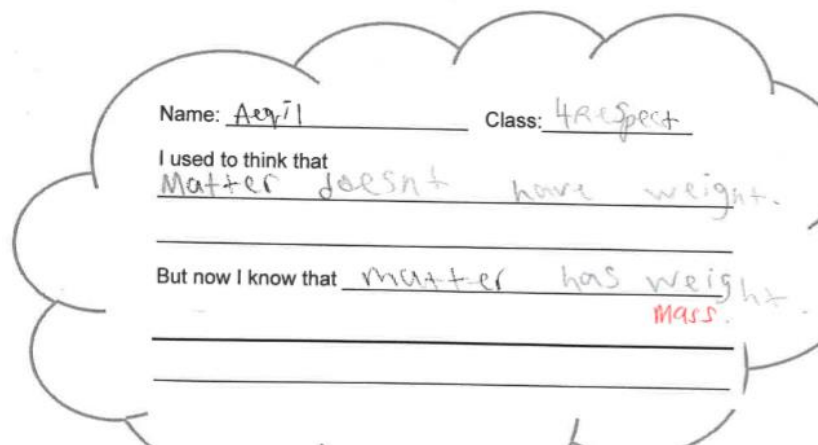 Name: Aeqil Class: 4Respect
I used to think that
Matter doesnt have weight.
But now I know that matter has weight.
Mass.